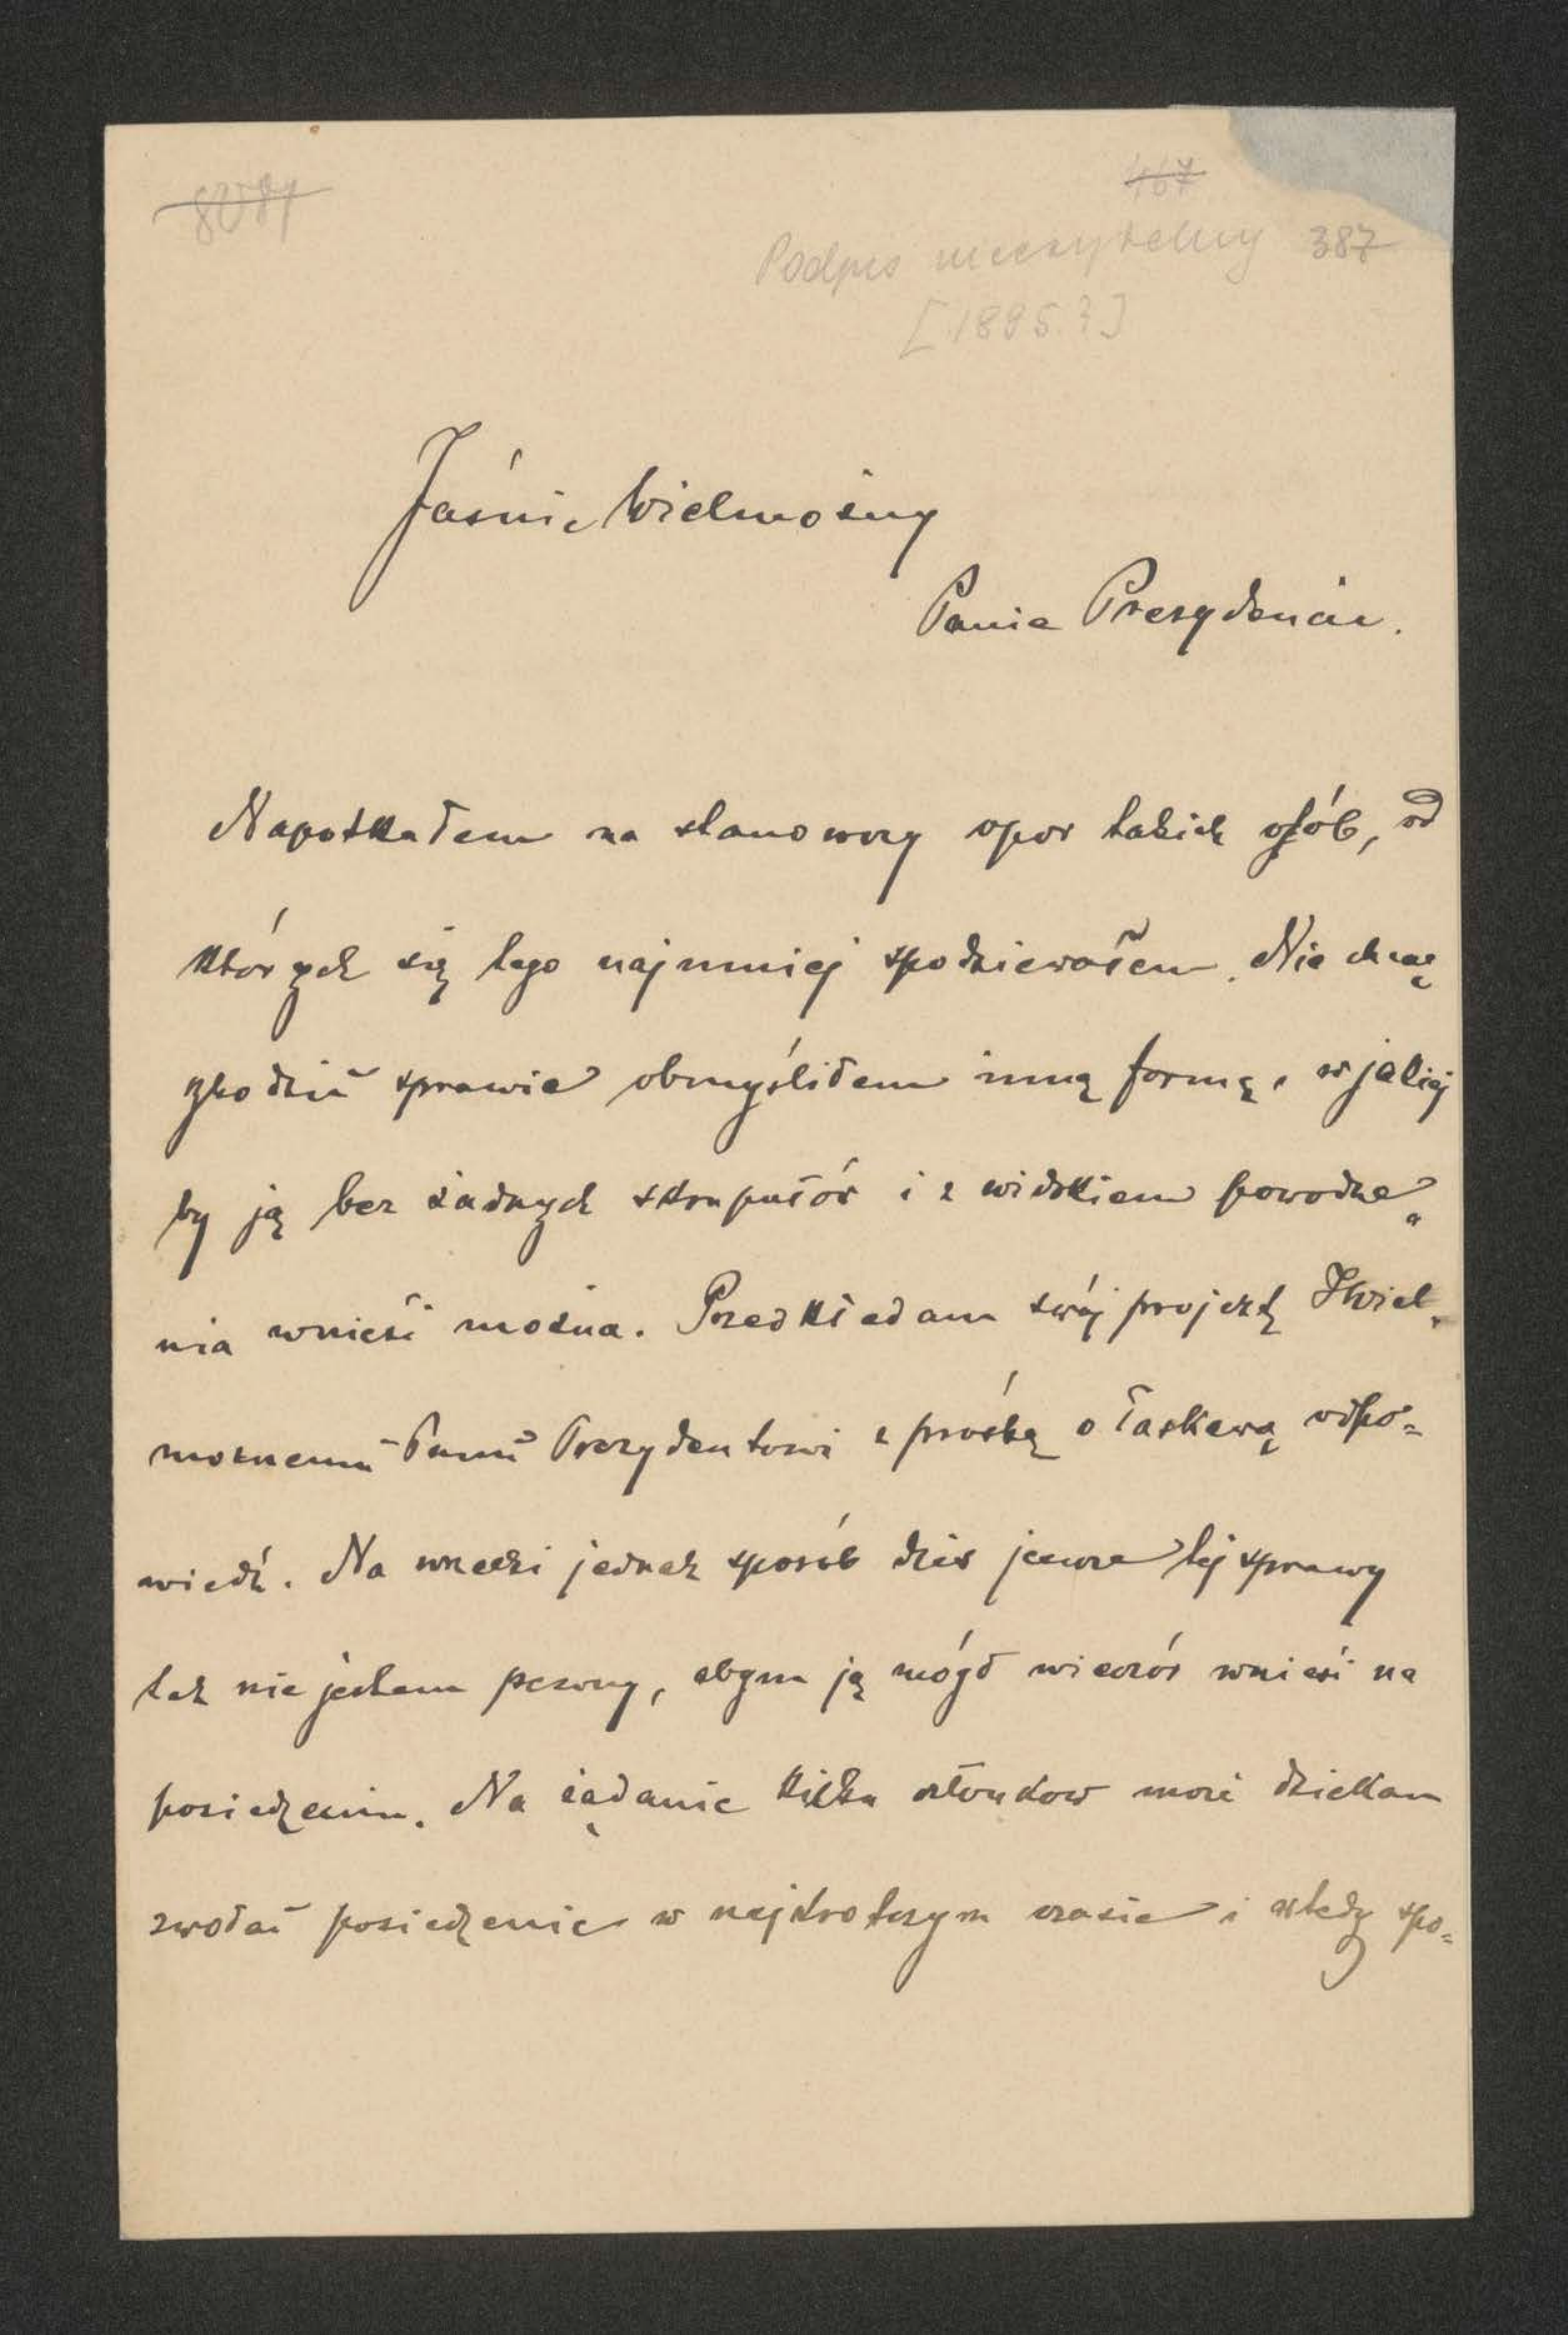 467
Podpis nieczytelny 387
[1895?]
Jaśnie Wielmożny
Panie Prezydencie.
Napotkałem na stanowczy opor takich osób, od
których się tego najmniej spodziewałem. Nie chcąc
szkodzić sprawie obmyśliłem inną formę, w jakiej
by ją bez żadnych skrupułów i z widokiem powodze„
nia wnieść można. Przedkładam swój projekt JWiel„
możnemu Panu Prezydentowi z prośbą o łaskawą odpo=
wiedź. Na wszelki jednak sposób dziś jeszcze tej sprawy
tak nie jestem pewny, abym ją mógł wieczór wnieść na
posiedzeniu. Na żądanie kilku członkow może dziekan
zwołać posiedzenie w najkrotszym czasie i wtedy spo=